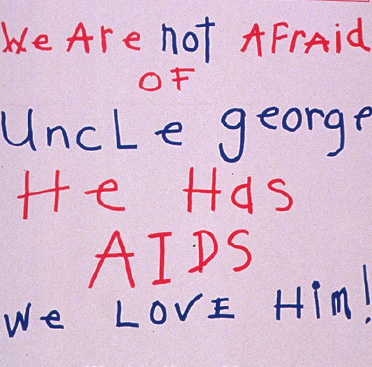 We Are not AFraid
OF
UncLe george
He Has
AIDS
We LOVE Him!